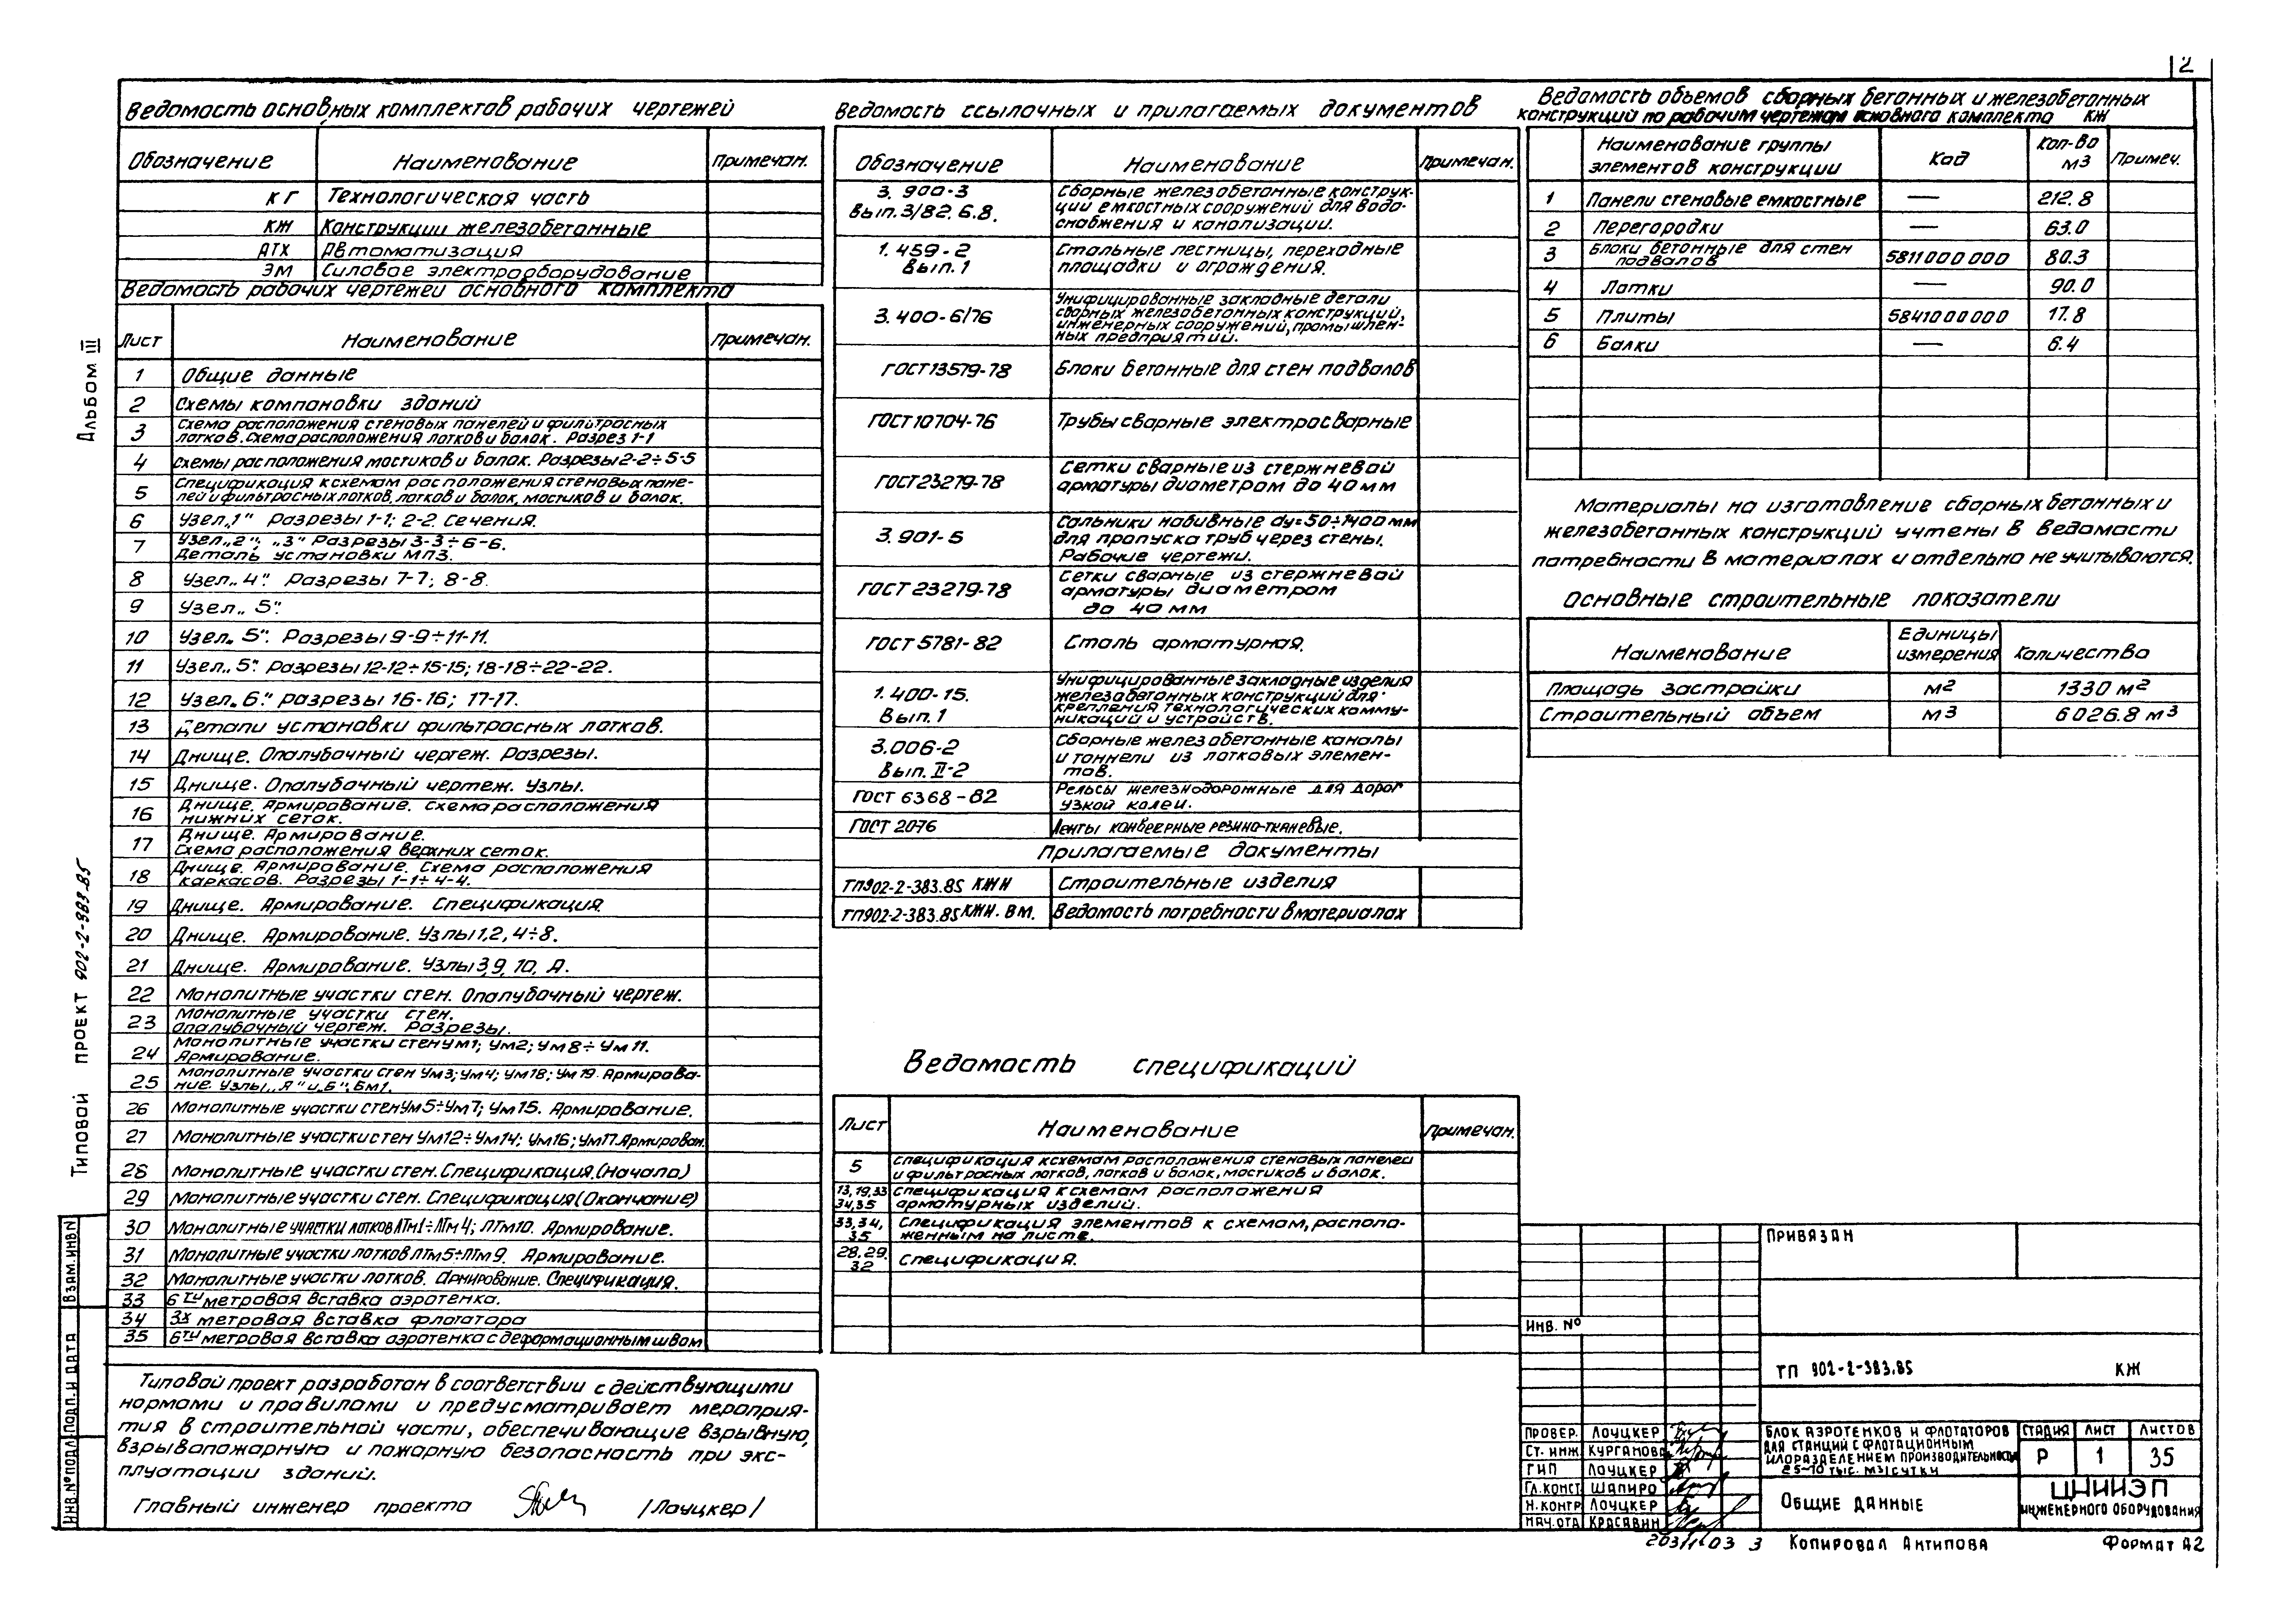 2
Ведомость основных комплектов рабочих чертежей
Обозначение Наименование Примечан.
КГ Технологическая часть
КЖ Конструкции железобетонные
АТХ Автоматизация
ЭМ Силовое электрооборудование
Ведомость рабочих чертежей основного комплекта
Лист Наименование Примечан.
1 Общие данные
2 Схемы компановки зданий
3 Схема расположения стеновых панелей и фильтросных
лотков. Схема расположения лотков и балок. Разрез 1-1
4 Схемы расположения мостиков и балок. Разрезы 2-2÷5-5
5 Спецификация к схемам расположения стеновых пане-
лей и фильтросных лотков, лотков и балок, мостиков и балок.
6 Узел „1" Разрезы 1-1; 2-2. Сечения.
7 Узел „2"; „3" Разрезы 3-3÷6-6.
Деталь установки МПЗ.
8 Узел „4". Разрезы 7-7; 8-8.
9 Узел „5".
10 Узел „5". Разрезы 9-9÷11-11.
11 Узел „5". Разрезы 12-12÷15-15; 18-18÷22-22.
12 Узел „6". разрезы 16-16; 17-17.
13 Детали установки фильтросных лотков.
14 Днище. Опалубочный чертеж. Разрезы.
15 Днище. Опалубочный чертеж. Узлы.
16 Днище. Армирование. Схема расположения
нижних сеток.
17 Днище. Армирование.
Схема расположения верхних сеток.
18 Днище. Армирование. Схема расположения
каркасов. Разрезы 1-1÷4-4.
19 Днище. Армирование. Спецификация.
20 Днище. Армирование. Узлы 1,2, 4÷8.
21 Днище. Армирование. Узлы 3,9, 10, А.
22 Монолитные участки стен. Опалубочный чертеж.
23 Монолитные участки стен.
Опалубочный чертеж. Разрезы.
24 Монолитные участки стен Ум1; Ум2; Ум8÷Ум11.
Армирование.
25 Монолитные участки стен Ум3; Ум4; Ум18; Ум19. Армирова-
ние. Узлы „А" и „Б"; Бм1.
26 Монолитные участки стен Ум5÷Ум7; Ум15. Армирование.
27 Монолитные участки стен Ум12÷Ум14; Ум16; Ум17. Армирован.
28 Монолитные участки стен. Спецификация. (Начало)
29 Монолитные участки стен. Спецификация (Окончание)
30 Монолитные участки лотков ЛТм1÷ЛТм4; ЛТм10. Армирование.
31 Монолитные участки лотков ЛТм5÷ЛТм9. Армирование.
32 Монолитные участки лотков. Армирование. Спецификация.
33 6ти метровая вставка аэротенка.
34 3х метровая вставка флотатора
35 6ти метровая вставка аэротенка с деформационным швом
Типовой проект разработан в соответствии с действующими
нормами и правилами и предусматривает мероприя-
тия в строительной части, обеспечивающие взрывную,
взрывопожарную и пожарную безопасность при экс-
плуатации зданий.
Главный инженер проекта /Лоуцкер/
Ведомость ссылочных и прилагаемых документов
Обозначение Наименование Примечан.
3. 900-3
Вып. 3/82. 6.8.
Сборные железобетонные конструк-
ции емкостных сооружений для водо-
снабжения и канализации.
1. 459-2
Вып. 1
Стальные лестницы, переходные
площадки и ограждения.
3. 400-6/76
Унифицированные закладные детали
сборных железобетонных конструкций,
инженерных сооружений, промышлен-
ных предприятий.
ГОСТ 13579-78 Блоки бетонные для стен подвалов
ГОСТ 10704-76 Трубы сварные электросварные
ГОСТ 23279-78
Сетки сварные из стержневой
арматуры диаметром до 40 мм
3. 901-5
Сальники набивные dу=50÷1400 мм
для пропуска труб через стены.
Рабочие чертежи.
ГОСТ 23279-78
Сетки сварные из стержневой
арматуры диаметром
до 40 мм
ГОСТ 5781-82 Сталь арматурная.
1. 400-15.
Вып. 1
Унифицированные закладные изделия
железобетонных конструкций для
крепления технологических комму-
никаций и устройств.
3.006-2
Вып. II-2
Сборные железобетонные каналы
и тоннели из лотковых элемен-
тов.
ГОСТ 6368-82
Рельсы железнодорожные для дорог
узкой колеи.
ГОСТ 2076 Ленты конвеерные резино-тканевые.
Прилагаемые документы
ТП902-2-383.85 КЖИ Строительные изделия
ТП902-2-383.85 КЖИ. ВМ. Ведомость потребности в материалах
Ведомость спецификаций
Лист Наименование Примечан.
5 Спецификация к схемам расположения стеновых панелей
и фильтросных лотков, лотков и балок, мостиков и балок.
13, 19, 33 Спецификация к схемам расположения
34, 35 арматурных изделий.
33, 34, Спецификация элементов к схемам, располо-
35 женным на листе.
28, 29,
32 Спецификация.
Ведомость объемов сборных бетонных и железобетонных
конструкций по рабочим чертежам основного комплекта КЖ
Наименование группы
элементов конструкции Код Кол-во
м3 Примеч.
1 Панели стеновые емкостные — 212.8
2 Перегородки — 63.0
3 Блоки бетонные для стен
подвалов 5811000000 80.3
4 Лотки — 90.0
5 Плиты 5841000000 17.8
6 Балки — 6.4
Материалы на изготовление сборных бетонных и
железобетонных конструкций учтены в ведомости
потребности в материалах и отдельно не учитываются.
Основные строительные показатели
Наименование Единицы
измерения Количество
Площадь застройки м2 1330 м2
Строительный объем м3 6026.8 м3
ПРИВЯЗАН
ИНВ. №
ТП 902-2-383.85 КЖ
ПРОВЕР. ЛОУЦКЕР
СТ. ИНЖ. КУРГАНОВА
ГИП ЛОУЦКЕР
ГЛ.КОНСТ ШАПИРО
Н.КОНТР ЛОУЦКЕР
НАЧ.ОТД КРАСАВИН
БЛОК АЭРОТЕНКОВ И ФЛОТАТОРОВ
ДЛЯ СТАНЦИЙ С ФЛОТАЦИОННЫМ
ИЛОРАЗДЕЛЕНИЕМ ПРОИЗВОДИТЕЛЬНОСТЬЮ
25-10 ТЫС. М3/СУТКИ
СТАДИЯ ЛИСТ ЛИСТОВ
Р 1 35
ОБЩИЕ ДАННЫЕ
ЦНИИЭП
ИНЖЕНЕРНОГО ОБОРУДОВАНИЯ
3 КОПИРОВАЛ АНТИПОВА ФОРМАТ А2
Альбом III
ТИПОВОЙ ПРОЕКТ 902-2-383.85
ВЗАМ. ИНВ N
ПОДП. И ДАТА
ИНВ. № ПОДЛ.